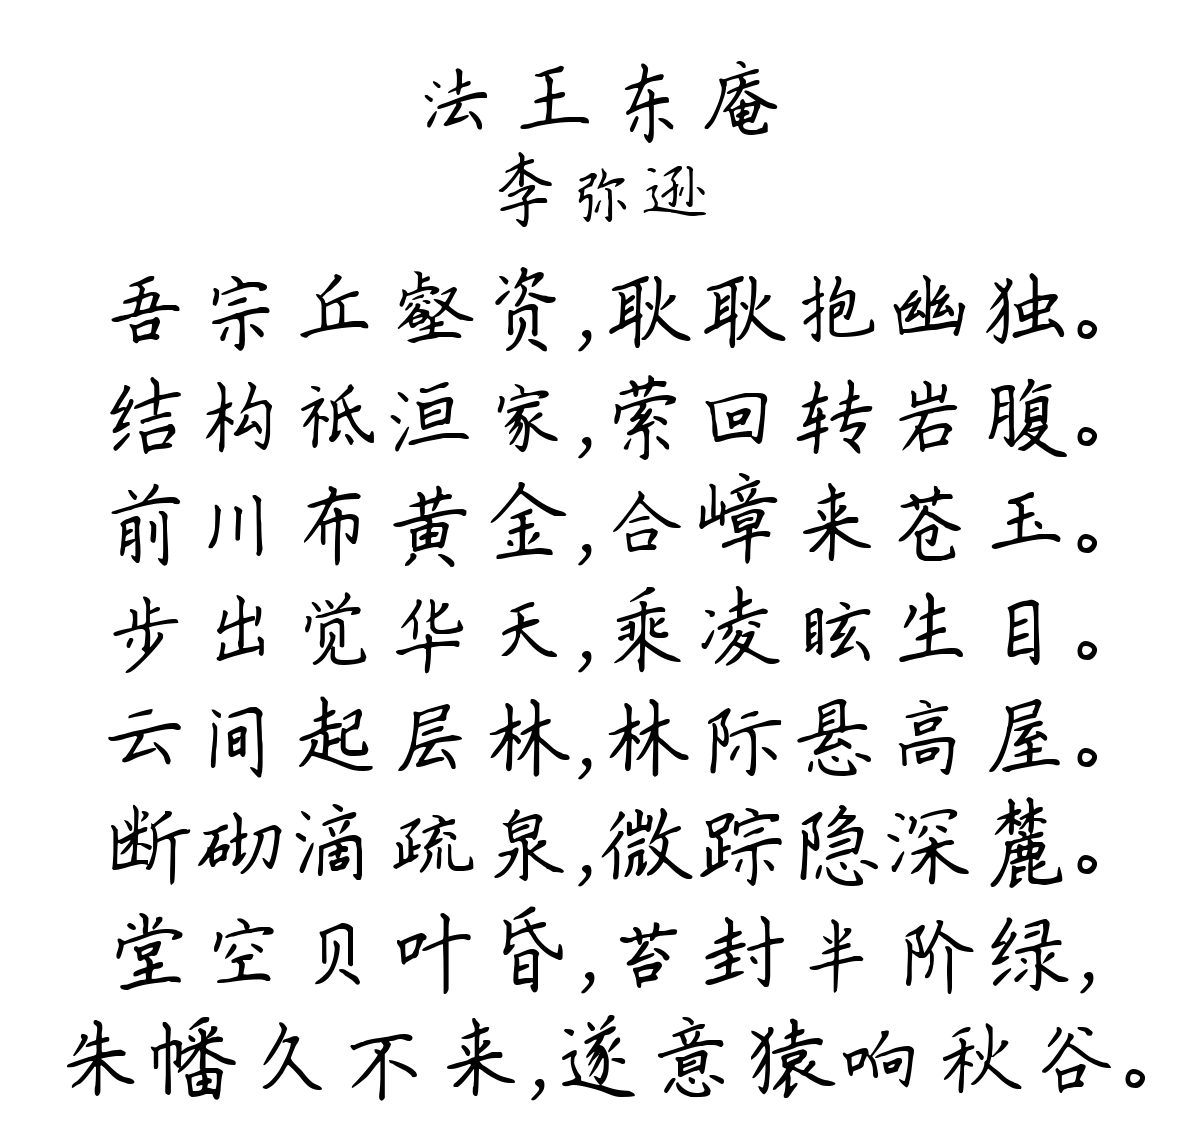 法王东庵
李弥逊
吾宗丘壑资,耿耿抱幽独。
结构祗洹家,萦回转岩腹。
前川布黄金,合嶂来苍玉。
步出觉华天,乘凌眩生目。
云间起层林,林际悬高屋。
断砌滴疏泉,微踪隐深麓。
堂空贝叶昏,苔封半阶绿,
朱幡久不来,遂意猿响秋谷。